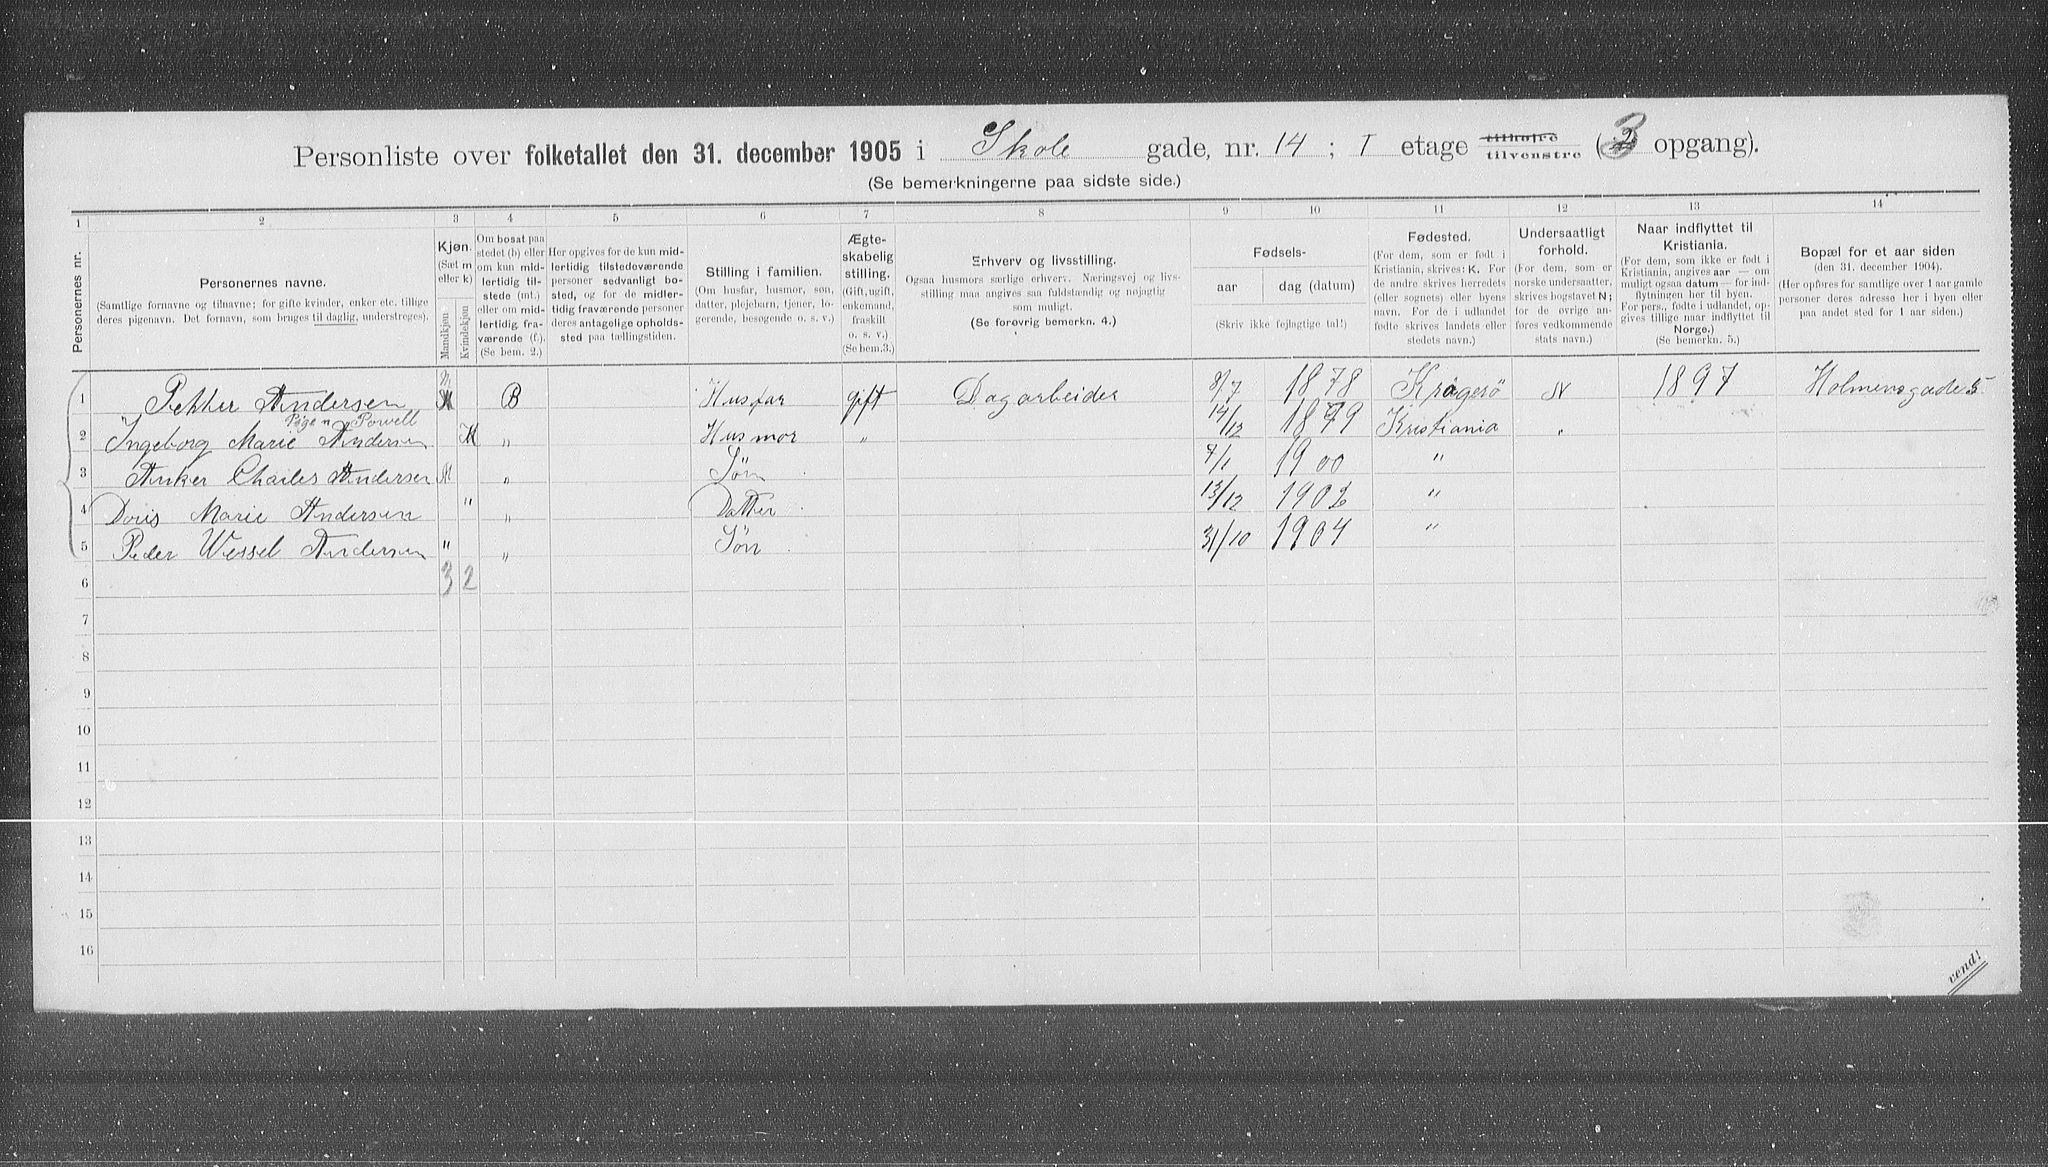 Personliste over folketallet den 31. december 1905 i Skole gade, nr. 14 ; I etage tilhøjre tilvenstre (3 opgang).
(Se bemerkningerne paa sidste side.)
1 2 3 4 5 6 7 8 9 10 11 12 13 14
Personernes nr.
Personernes navne.
(Samtlige fornavne og tilnavne; for gifte kvinder, enker etc. tillige
deres pigenavn. Det fornavn, som bruges til daglig, understreges).
Kjøn.
(Sæt m
eller k)
Mandkjøn
Kvindekjøn
Om bosat paa
stedet (b) eller
om kun mid-
lertidig til-
stede (mt.)
eller om mid-
lertidig fra-
værende (f.).
(Se bem. 2.)
Her opgives for de kun mid-
lertidig tilstedeværende
personer sedvanligt bo-
sted, og for de midler-
tidig fraværende personer
deres antagelige opholds-
sted paa tællingstiden.
Stilling i familien.
(Om husfar, husmor, søn,
datter, plejebarn, tjener, lo-
gerende, besøgende o. s. v.)
Ægte-
skabelig
stilling.
(Gift, ugift,
enkemand,
fraskilt
o. s. v.)
(Se bem.3.)
Erhverv og livsstilling.
Ogsaa husmors særlige erhverv. Næringsvej og livs-
stilling maa angives saa fuldstændig og nøjagtig
som muligt.
(Se forøvrig bemerkn. 4.)
Fødsels-
aar
dag (datum)
(Skriv ikke fejlagtige tal!)
Fødested.
(For dem, som er født i
Kristiania, skrives: K. For
de andre skrives herredets
(eller sognets) eller byens
navn. For de i udlandet
fødte skrives landets eller
stedets navn.)
Undersaatligt
forhold.
(For dem, som er
norske undersaatter,
skrives bogstavet N;
for de øvrige an-
føres vedkommende
stats navn.)
Naar indflyttet til
Kristiania.
(For dem, som ikke er født i
Kristiania, angives aar — om
muligt ogsaa datum — for ind-
flytningen her til byen.
For pers., fødte i udlandet, op-
gives tillige naar indflyttet til
Norge.)
(Se bemerkn. 5.)
Bopæl for et aar siden
(den 31. december 1904).
(Her opføres for samtlige over 1 aar gamle
personer deres adresse her i byen eller
paa andet sted for 1 aar siden.)
1 Petter Andersen M B Husfar gift Dagarbeider 8/7 1878 Kragerø N 1897 Holmensgade 5
Pige n Powell
2 Ingeborg Marie Andersen K " Husmor " 14/12 1879 Kristiania "
3 Anker Charles Andersen M " Søn 7/1 1900 "
4 Doris Marie Andersen " " Datter 13/12 1902 "
5 Peder Wessel Andersen " " Søn 31/10 1904 "
6 3 2
7
8
9
10
11
12
13
14
15
16
vend!